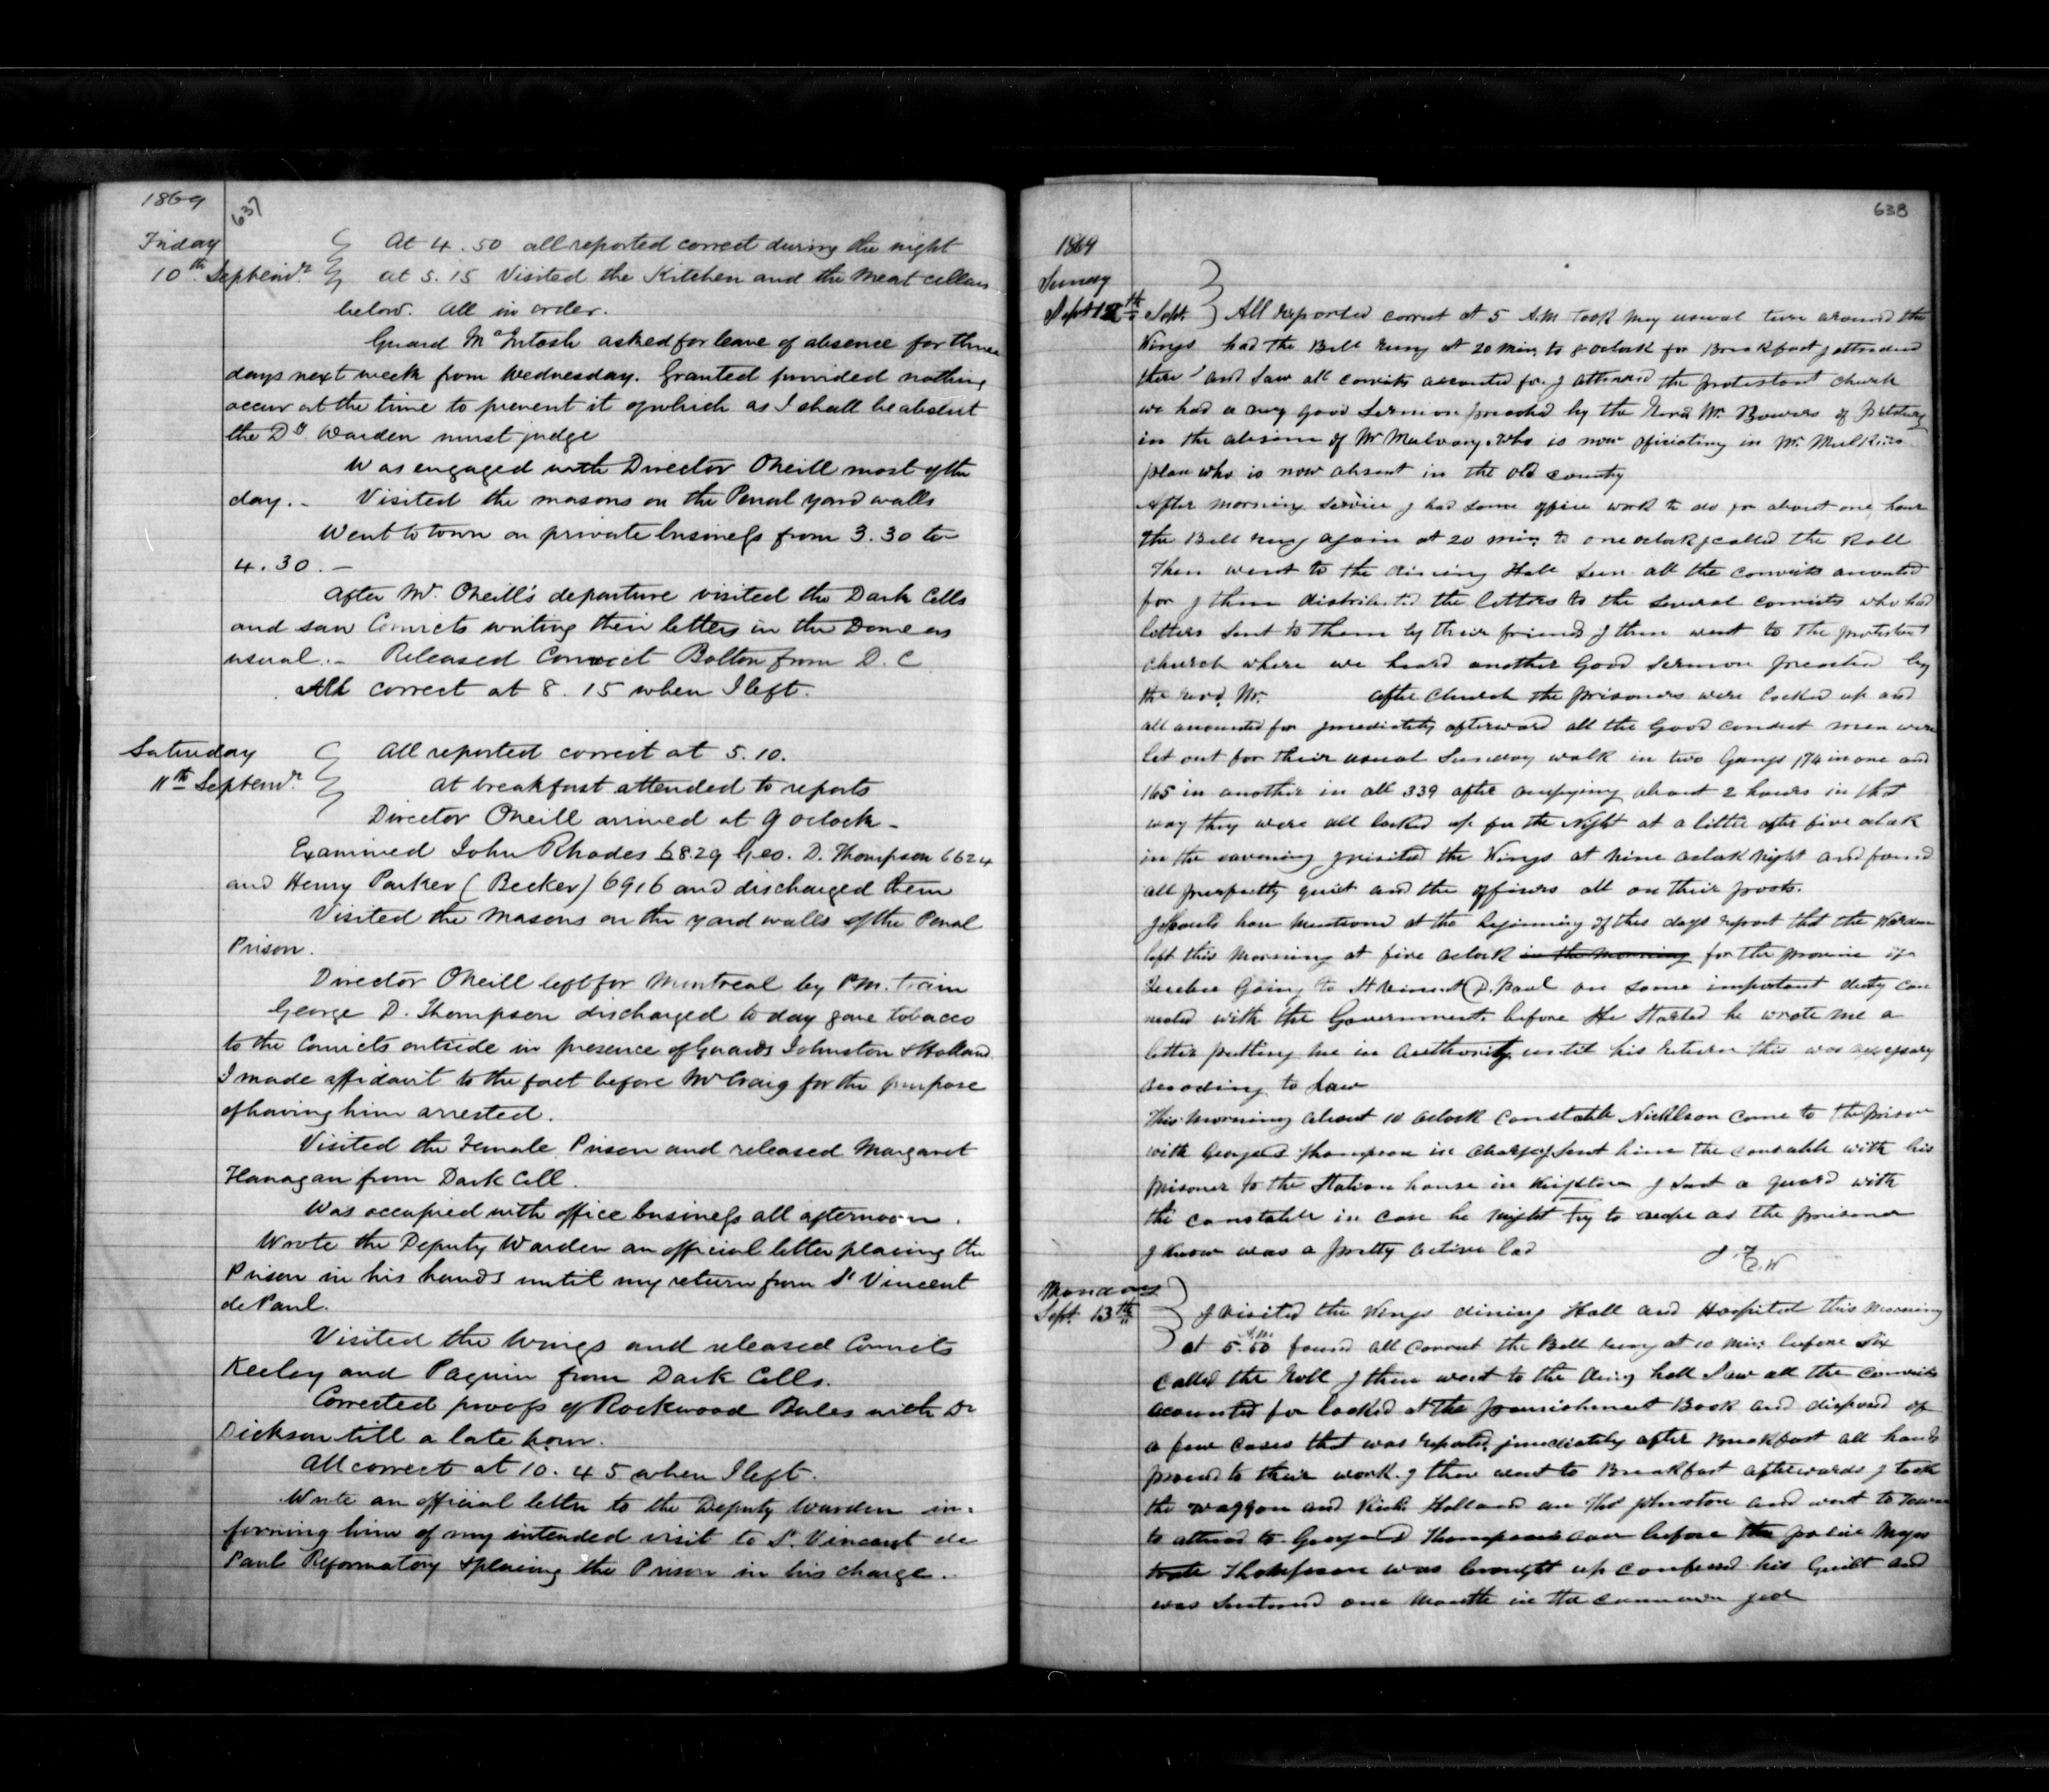 1869
637
Friday
10th Septemr.
At 4.50 all reported correct during the night
at 5.15 Visited the Kitchen and the Meat cellars
below. All in order.
Guard McIntosh asked for leave of absence for three
days next week from Wednesday. Granted provided nothing
occur at the time to prevent it of which as I shall be absent
the Dy Warden must judge
Was engaged with Director Oneill most of the
day. - Visited the masons on the Penal yard walls
Went to town on private business from 3.30 to
4.30. -
After Mr. Oneill's departure visited the Dark Cells
and saw Convicts writing their letters in the Dome as
usual. - Released Convict Bolton from D. C
All correct at 8.15 when I left.
Saturday
11th Septemr.
All reported correct at 5.10.
At breakfast attended to reports
Director Oneill arrived at 9 oclock -
Examined John Rhodes 6829 Geo. D. Thompson 6624
and Henry Parker (Becker) 6916 and discharged them
Visited the Masons on the yard walls of the Penal
Prison.
Director Oneill left for Montreal by P.M. train
George D. Thompson discharged to day gave tobacco
to the Convicts outside in presence of Guards Johnston & Holland.
I made affidavit to the fact before Mr Craig for the purpose
of having him arrested.
Visited the Female Prison and released Margaret
Flanagan from Dark Cell.
Was occupied with office business all afternoon.
Wrote the Deputy Warden an official letter placing the
Prison in his hands until my return from St Vincent
de Paul.
Visited the Wings and released Convicts
Keeley and Paquin from Dark Cells.
Corrected proofs of Rockwood Rules with Dr
Dickson till a late hour.
All correct at 10.45 when I left.
Wrote an official letter to the Deputy Warden in=
forming him of my intended visit to St. Vincent de
Paul Reformatory & placing the Prison in his charge.
638
1869
Sunday
Sept 12th Sept.
All reported correct at 5 A.M. took my usual ture around the
Wings had the Bell rung at 20 min. to 8 oclock for Breakfast I attended
there and saw all convicts accounted for I attended the protestant church
we had a very good Sermon preached by the Revd. Mr. Bowers of
in the absence of Mr Mulvany who is now oficiating in Mr. Mulkins
place who is now absent in the old country
After morning service I had some office work to do for about one hour
the Bell rung again at 20 min. to one oclock I called the Roll
Then went to the dining Hall seen all the convicts acounted
for I then distributed the letters to the several convicts who had
letters sent to them by their friends I then went to the protestant
church where we heard another Good Sermon preached by
the revd. Mr. after Church the prisoners were locked up and
all accounted for imediately afterward all the Good conduct men were
let out for their usual Sunday walk in two Gangs 174 in one and
165 in another in all 339 after ocupying about 2 hours in that
way they were all locked up for the Night at a little after five oclock
in the evening I visited the Wings at nine oclock Night and found
all perfectly quiet and the officers all on their posts.
I should have mentioned at the beginning of this days report that the Warden
left this morning at five oclock in the morning for the province of
Quebec Going to St Vincent D. Paul on some important duty con
nected with the Government. before He Started he wrote me a
letter putting me in authority until his return this was
according to Law
This morning about 10 oclock constable Nicklson came to the prison
with George D Thompson in charge I sent him the constable with his
prisoner to the Station house in Kingston I sent a guard with
the constable in case he might try to escape as the prisoner
I know was a pretty active lad
Monday
Sept. 13th
I visited the Wings dining Hall and Hospital this morning
at 5.50 A.M. found all correct the Bell rung at 10 min. before Six
Called the Roll I then went to the dinig hall saw all the convicts
acounted for looked at the punishment Book and disposed of
a few cases that was reported, imediately after Breakfast all hands
proced to their work. I then went to Breakfast afterwards I took
the waggon and Richd. Holland an Thos Johnston and went to Town
to attend to George D Thompsons case before the police Majis
trate Thompson was brought up confesed his Guilt and
was sentenced one month in the common goal